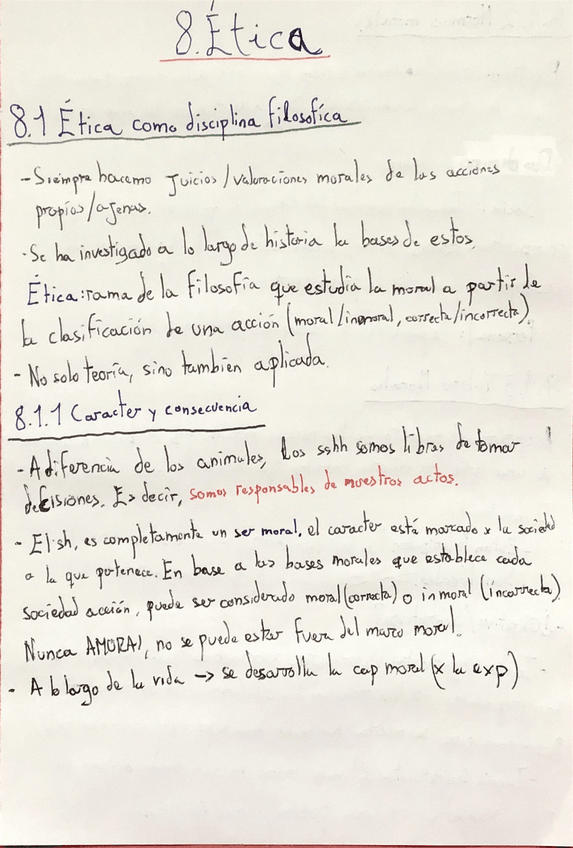 8. Ética
8.1 Ética como disciplina filosofíca
- Siempre hacemo juicios/valoraciones morales de las acciones
propias/ajenas.
· Se ha investigado a lo largo de historia la bases de estos.
Ética: rama de la filosofía que estudia la moral a partir de
la clasificación de una acción (moral/inmoral, correcta/incorrecta)
- No solo teoría, sino tambien aplicada.
8.1.1 Caracter y consecuencia
- A diferencia de los animales, los sshh somos libras de tomar
decisiones. Es decir, somos responsables de nuestros actos.
- El sh, es completamente un ser moral, el caracter está marcado x la sociedad
a la que pertenece. En base a las bases morales que establece cada
sociedad acción, puede ser considerado moral (correcta) o inmoral (incorrecta)
Nunca AMORAL, no se puede estar fuera del marco moral.
- A lo largo de la vida -> se desarrolla la cap moral (x la exp)